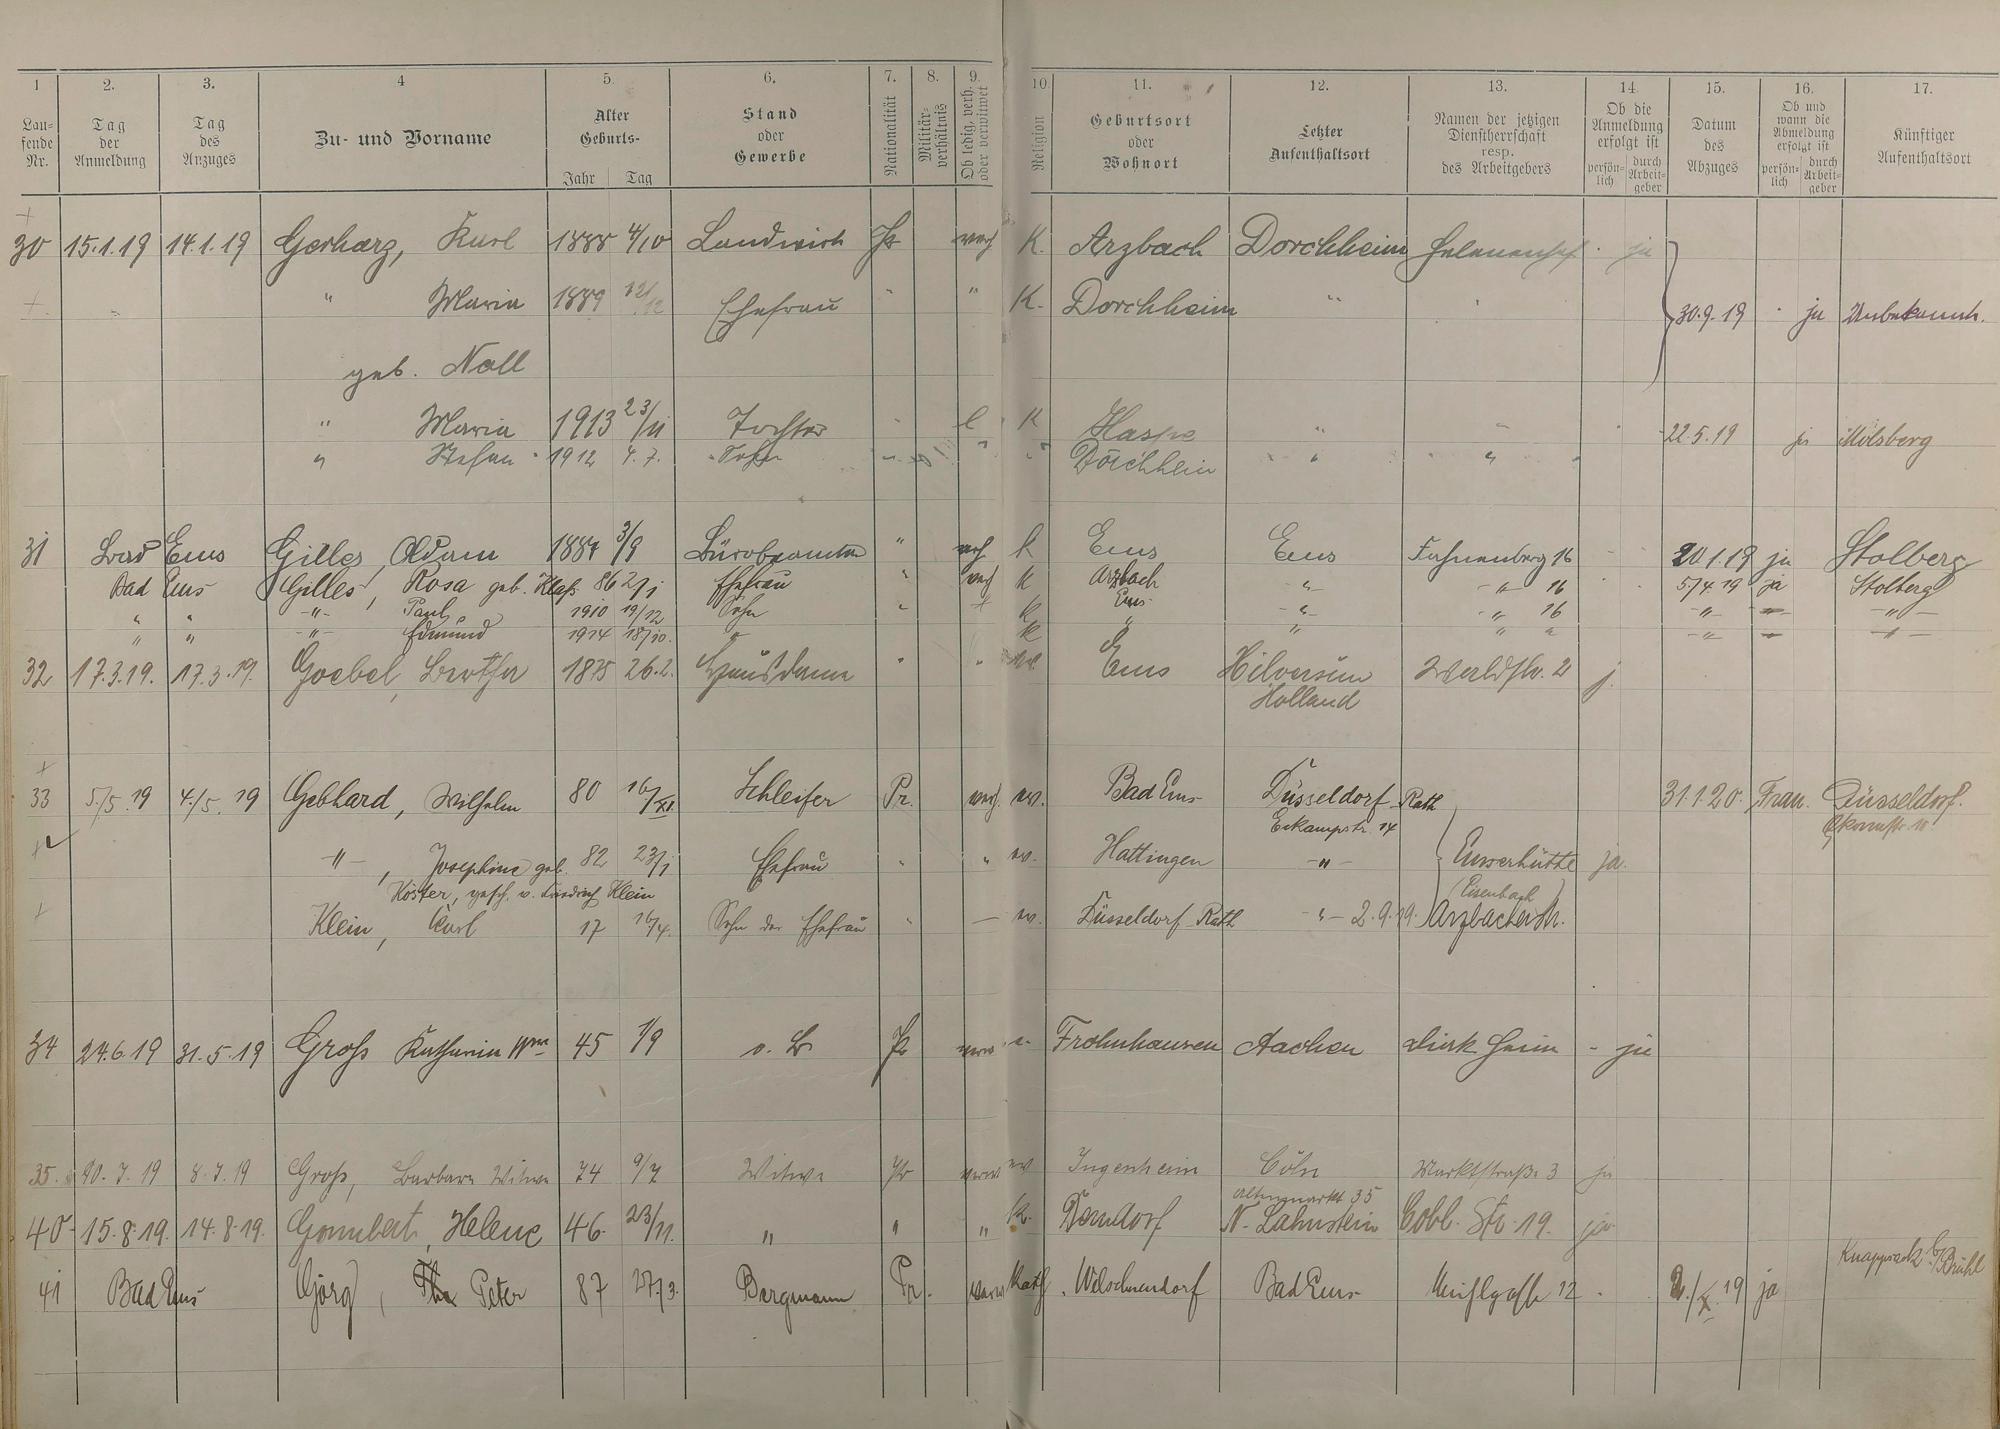 1 2. 3. 4 5. 6. 7. 8. 9. 10 11. 12. 13. 14. 15. 16. 17.
Lau-
fende
Nr.
Tag
der
Anmeldung
Tag
des
Anzuges
Zu- und Vorname
Alter
Geburts-
Jahr Tag
Stand
oder
Gewerbe
Nationalität
Militär-
verhältnis
Ob ledig, verh.
oder verwitwet
Religion
Geburtsort
oder
Wohnort
Letzter
Aufenthaltsort
Namen der jetzigen
Dienstherrschaft
resp.
des Arbeitgebers
Ob die
Anmeldung
erfolgt ist
persön-
lich
durch
Arbeit-
geber
Datum
des
Abzuges
Ob und
wann die
Abmeldung
erfolgt ist
persön-
lich
durch
Arbeit-
geber
Künftiger
Aufenthaltsort
30 15.1.19 14.1.19 Gerharz, Karl 1888 4/10 Landwirt Pr verh K. Arzbach Dorchheim ja
" Maria 1889 12/12 Ehefrau " " K. Dorchheim " " 30.9.19 ja Unbekannt.
geb. Noll
" Maria 1913 23/11 Tochter " l K Haspe " " 22.5.19 ja Molsberg
" Stefan 1912 4.7. Sohn " " " Dorchheim " "
31 Bad Ems Gilles, Adam 1884 3/9 Bürobeamter " verh k Ems Ems 16 20.1.19 ja Stolberg
Bad Ems Gilles, Rosa geb. Klaß 86 2/1 Ehefrau " verh k Arzbach -"- -"- 16 5/4.19 ja Stolberg
" " -"- Paul 1910 19/12 Sohn " k Ems -"- " 16 -"- -"- -"-
" " -"- Edmund 1914 18/10. " k " " " " -"- -"- -"-
32 17.3.19. 17.3.19. Goebel, Bertha 1875 26.2. Hausdame " " ev. Ems Hilversum Waldstr. 2 j.
Holland
33 5./5.19 4./5.19 Gebhard, Wilhelm 80 16/XI. Schleifer Pr. verh. ev. Bad Ems Düsseldorf-Rath 31.1.20. Frau. Düsseldorf.
Eckampstr. 14
-"-, Josephine geb. 82 23/1 Ehefrau " " ev. Hattingen -"- Emserhütte ja.
Köster, gesch. v. Friedrich Klein
(Eisenbach)
Klein, Carl 17 16/4. Sohn der Ehefrau " — ev. Düsseldorf-Rath -"- 2.9.19. Arzbacherstr.
34 24.6.19 31.5.19 Groß Katharina Wwe 45 1/9 o. B. Pr verw Frohnhausen Aachen - ja
35. 10.7.19 8.7.19 Groß, Barbara Witwe 74 9/7 Witwe Pr verw ev Ingenheim Cöln Marktstraße 3 ja
Altenmarkt 35
40 15.8.19. 14.8.19. Gombert, Helene 46. 23/11. " " " K. N.-Lahnstein Cobl. Str. 19. ja
41 Bad Ems Görg, Peter 87 27./3. Bergmann Pr. verw kath. Welschneudorf Bad Ems Mühlgasse 12 2./X.19 ja Knapsack b/Brühl